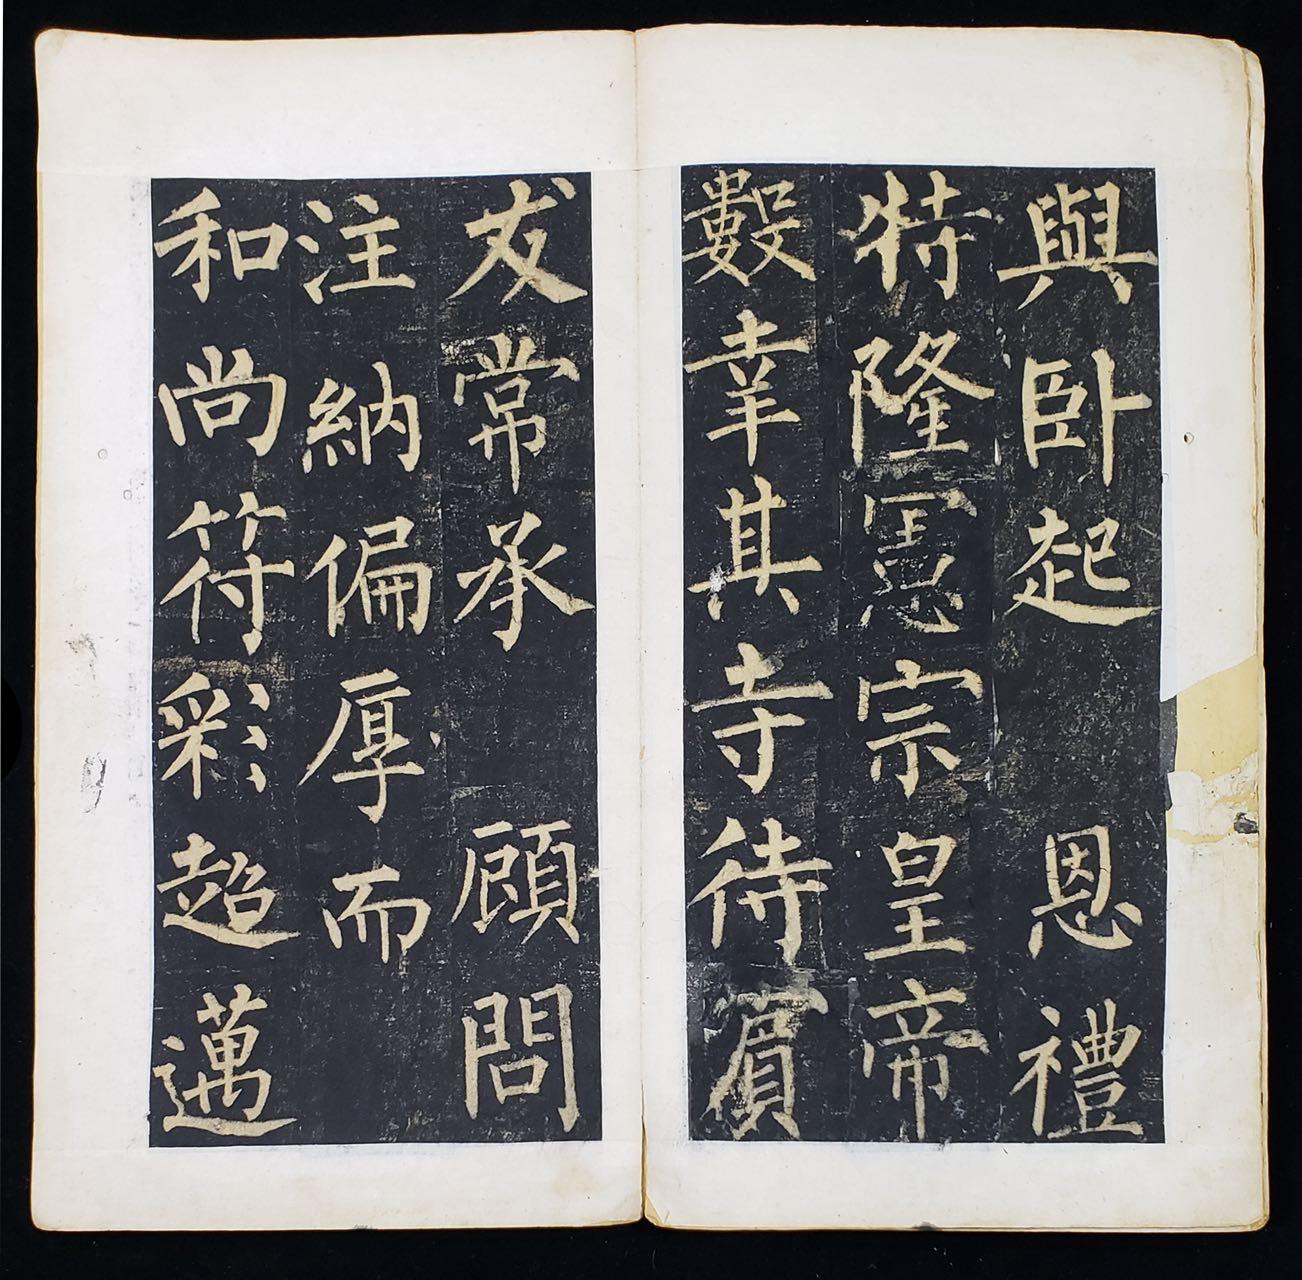 與臥起恩禮
特隆憲宗皇帝
數幸其寺待賓
友常承顧問
注納偏厚而
和尚符彩超邁